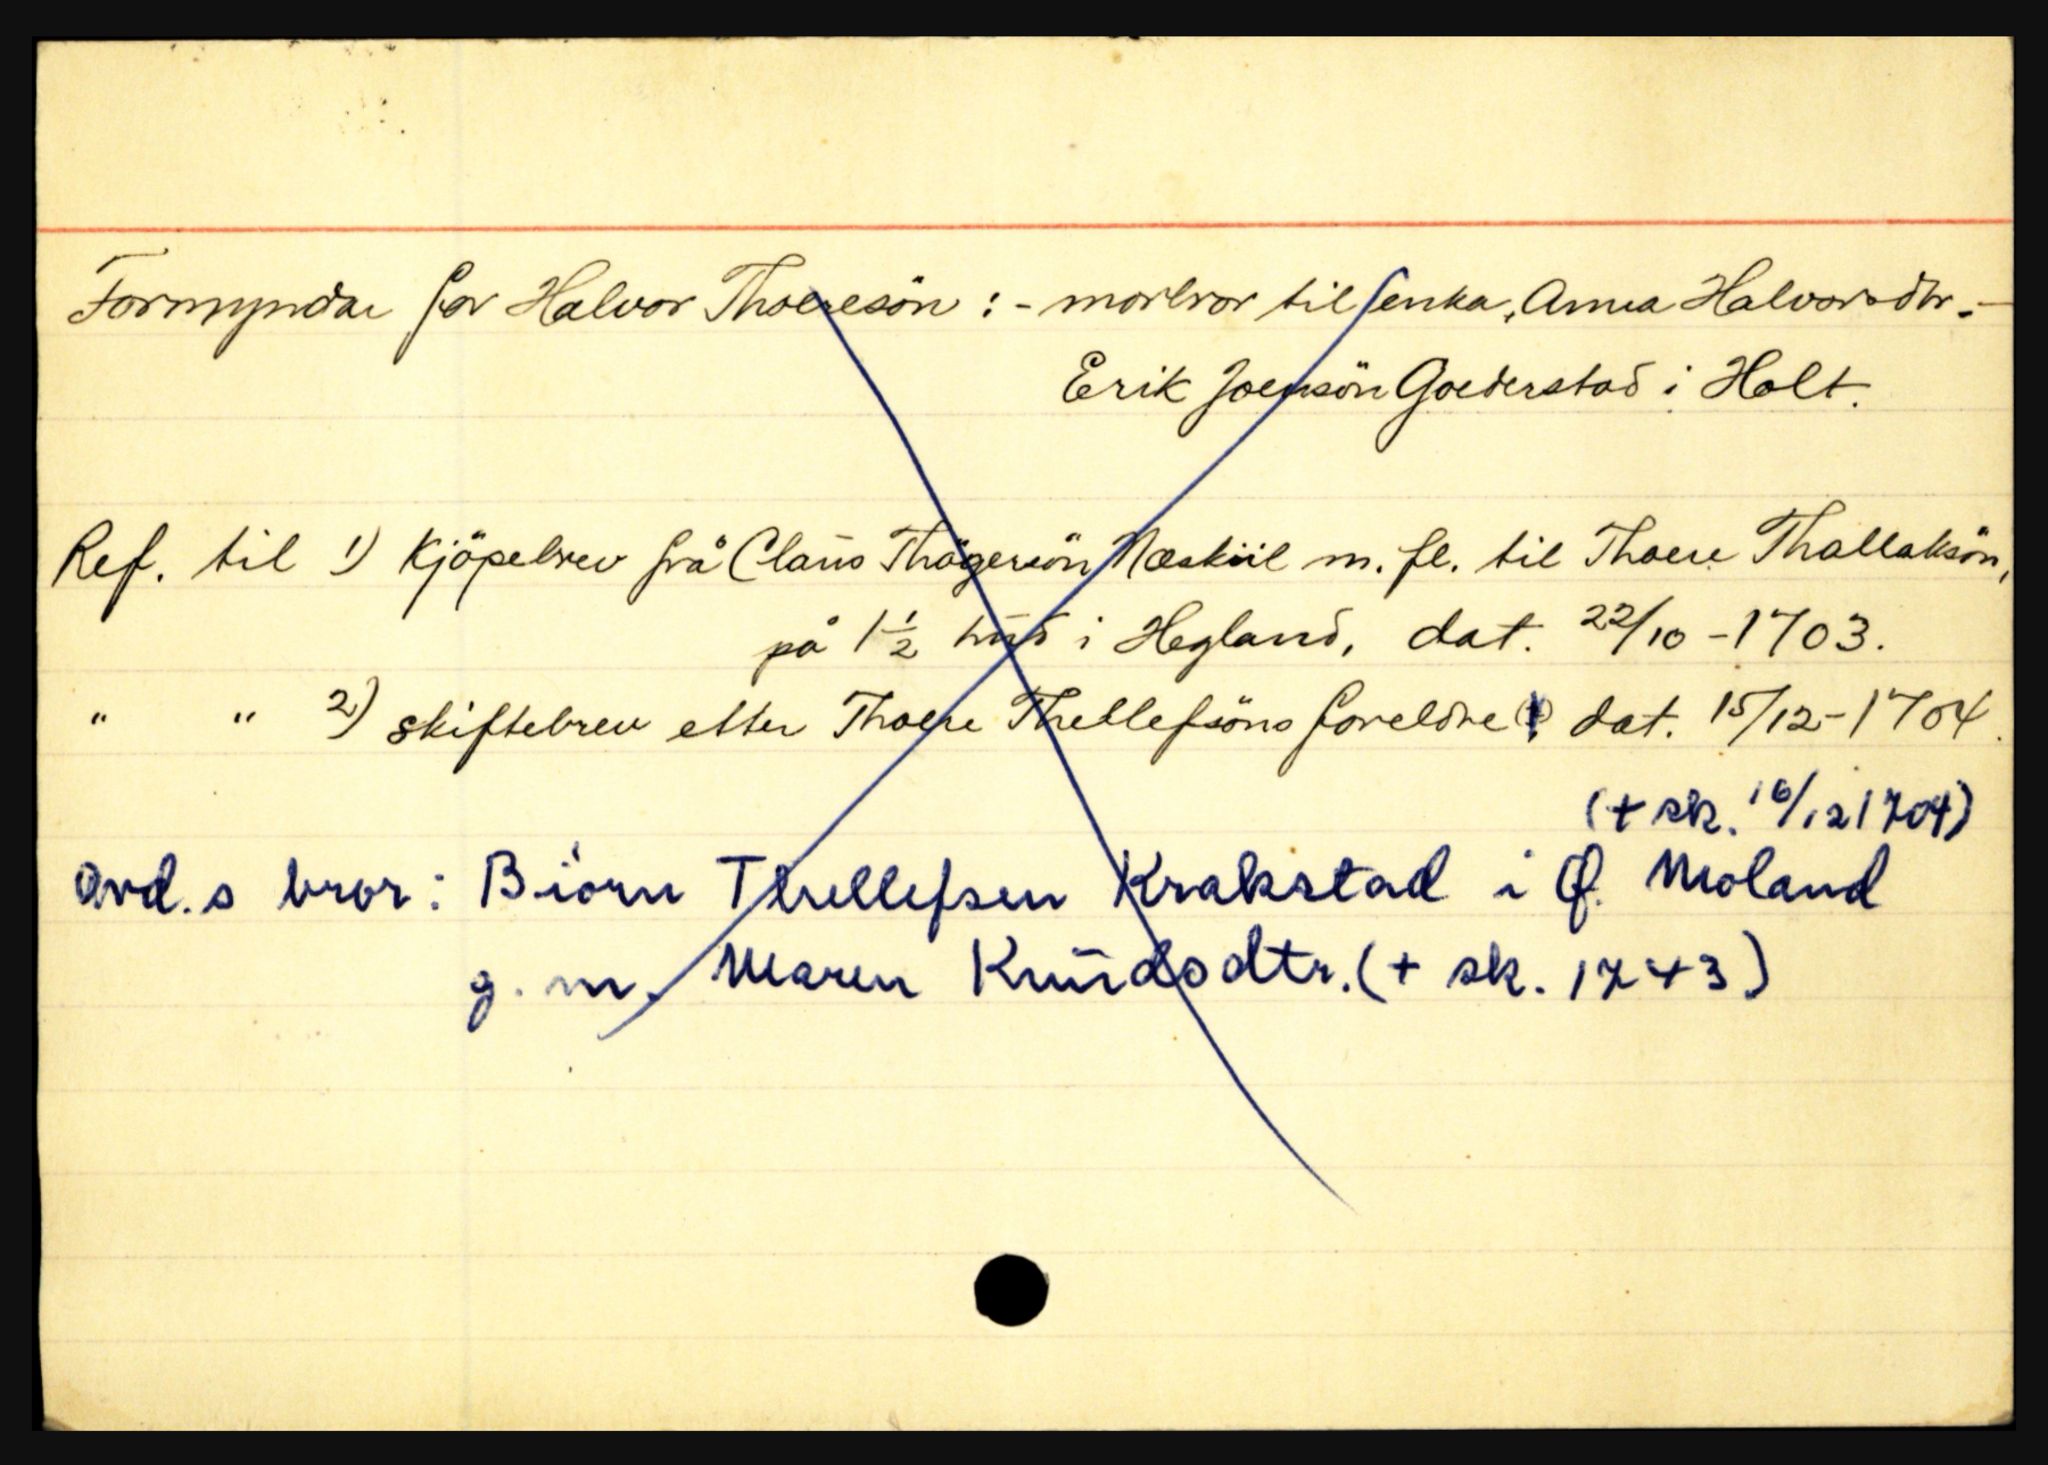 Formyndar for Halvor Thoeresön : - morbror til enka, Anna Halvorsdtr. -
Erik Joensön Goederstad i Holt.
Ref. til 1) Kjöpebrev frå Claus Thögersön Næskiil m. fl. til Thoere Thallaksön,
på 1 1/2 hud i Hegland, dat. 22/10 - 1703.
" " 2) skiftebrev etter Thoere Thellefsöns foreldre dat. 15/12 - 1704.
(+ sk. 16/12 1704)
avd. s bror: Biörn Thellefsen Krakstad i Ø. Moland
g. m. Maren Knudsdtr. (+ sk. 1743)